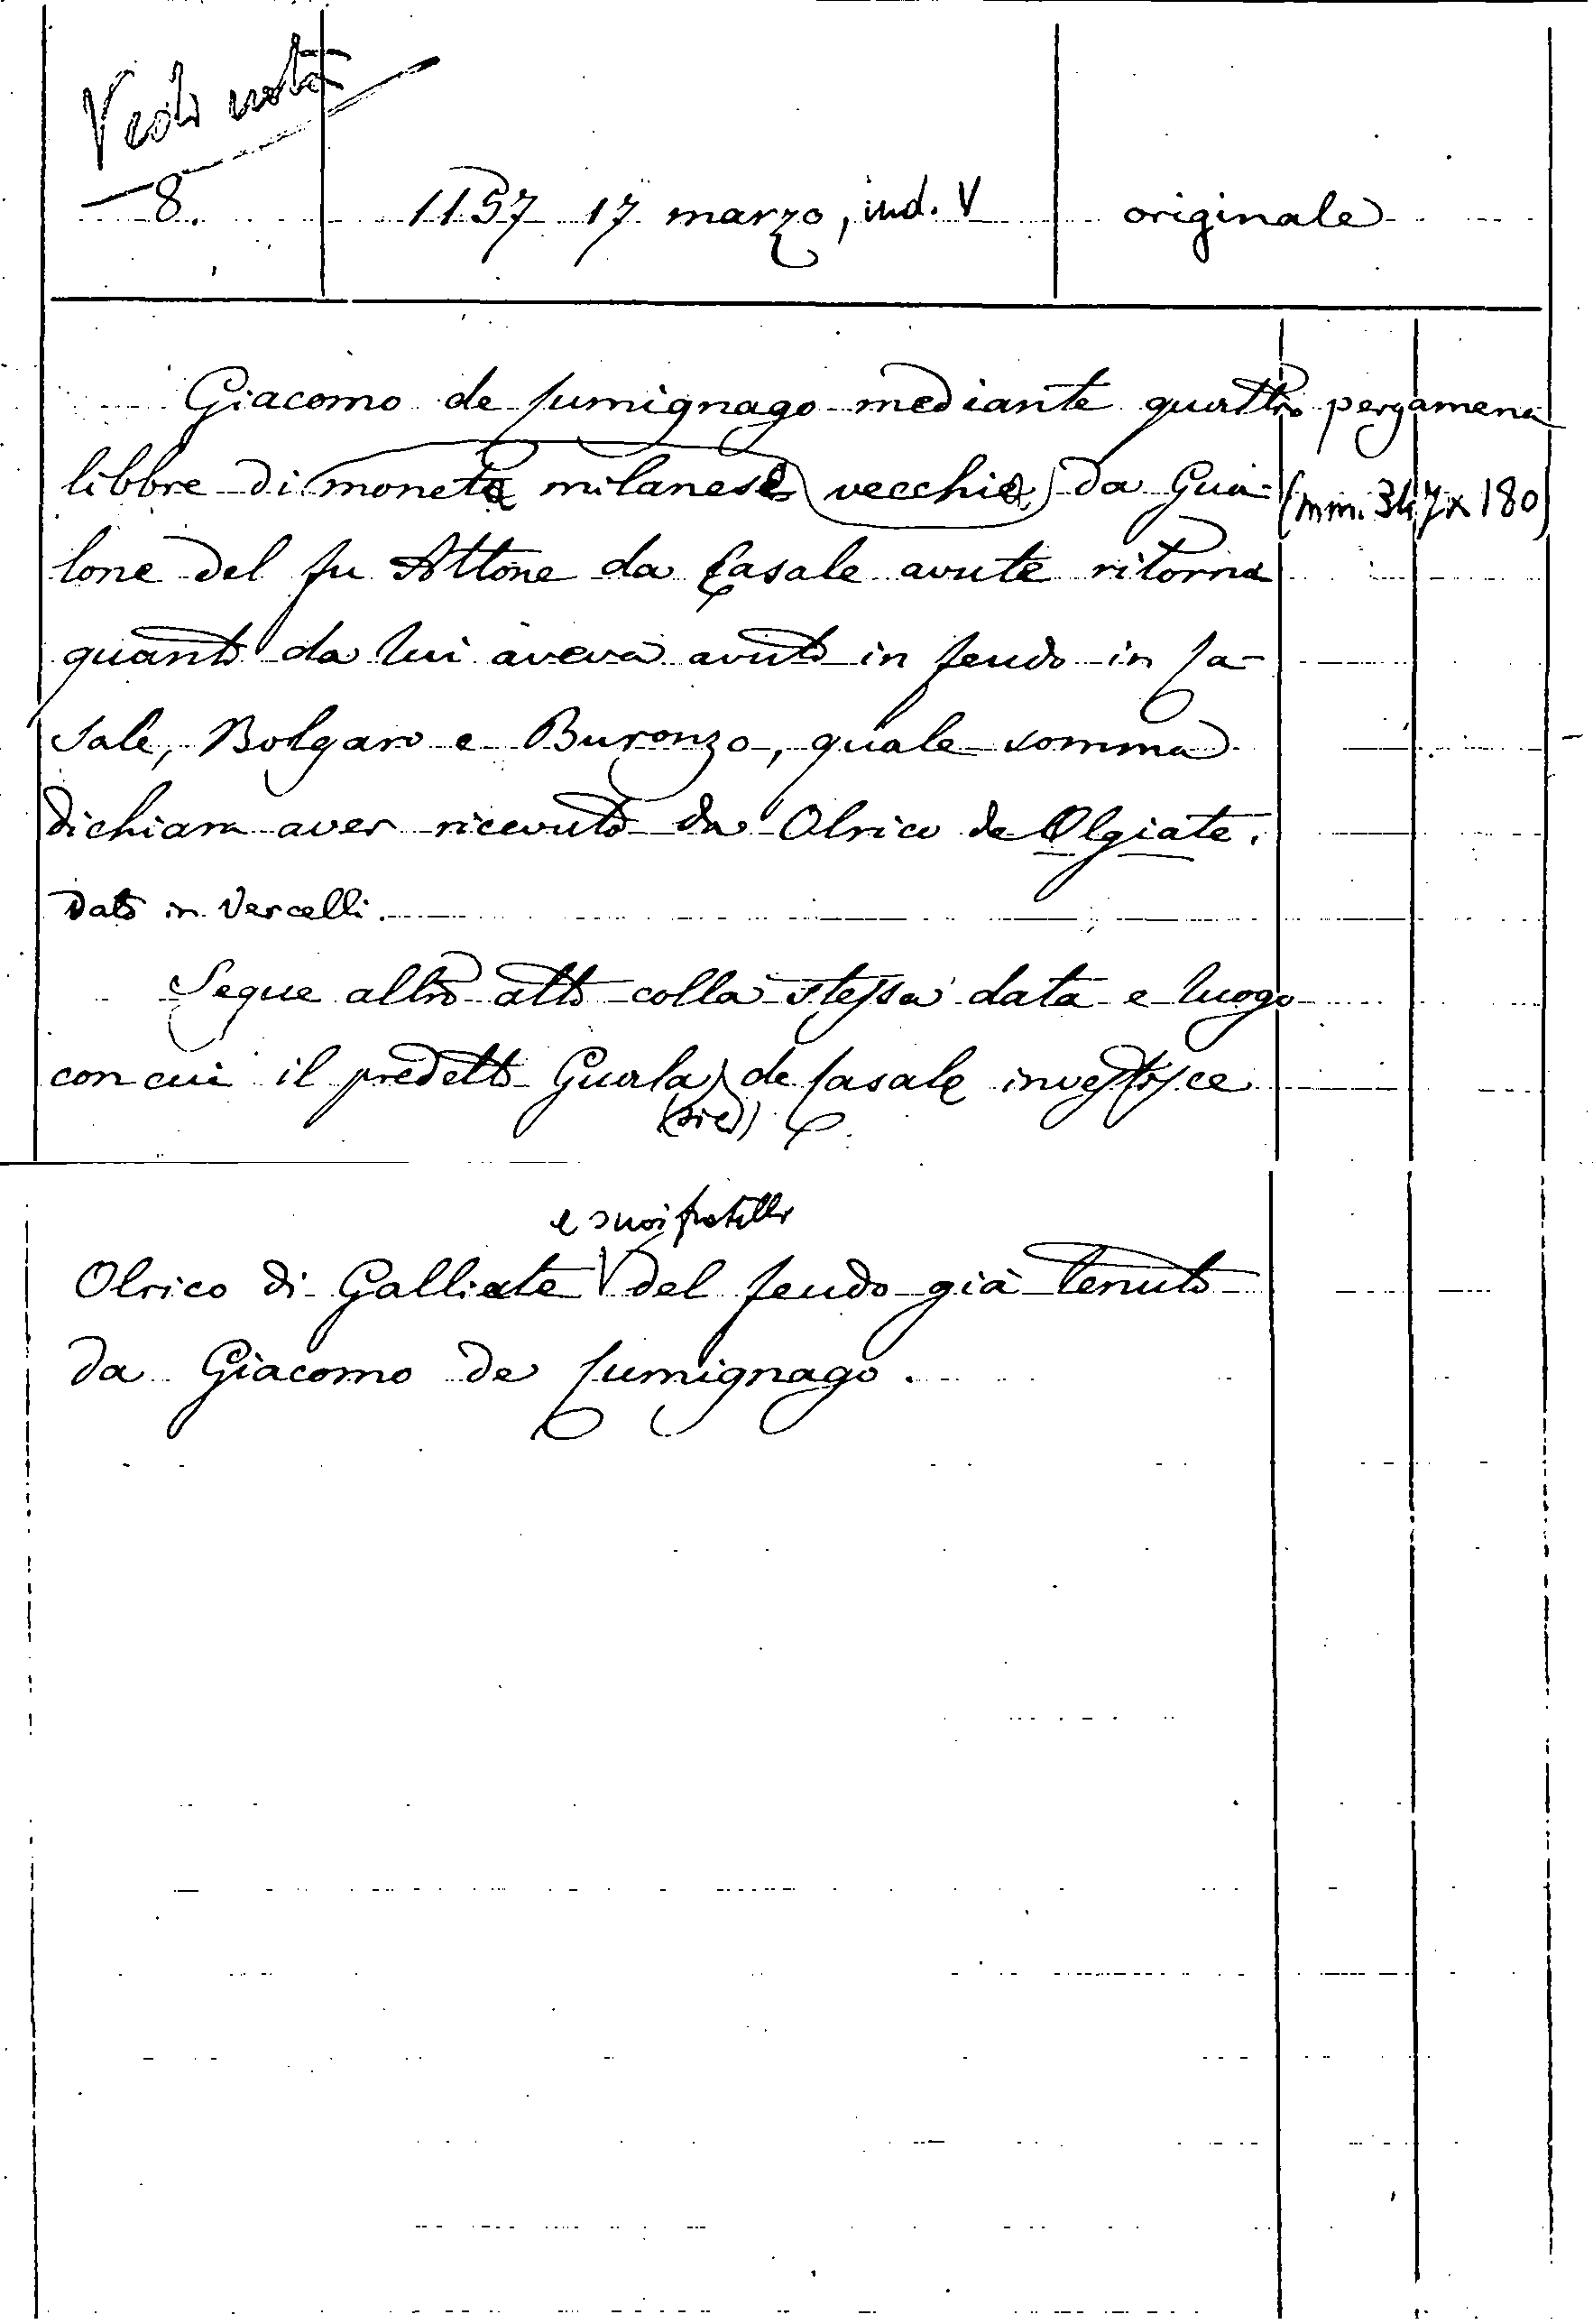 Vedi nota
8.
1157 17 marzo, ind. V
originale
Giacomo de Cumignago mediante quattro
libbre di moneta milanese vecchia da Gua-
lone del fu Attone da Casale avute ritorna
quanto da lui aveva avuto in feudo in Ca-
sale, Bolgaro e Buronzo, quale somma
dichiara aver ricevuto da Olrico de Olgiate.
Dato in Vercelli.
Segue altro atto colla stessa data e luogo
con cui il predetto Guala (sic) de Casale investisce
pergamena
(mm. 347 x 180)
e suoi fratelli
Olrico di Galliate del feudo già tenuto
da Giacomo de Cumignago.